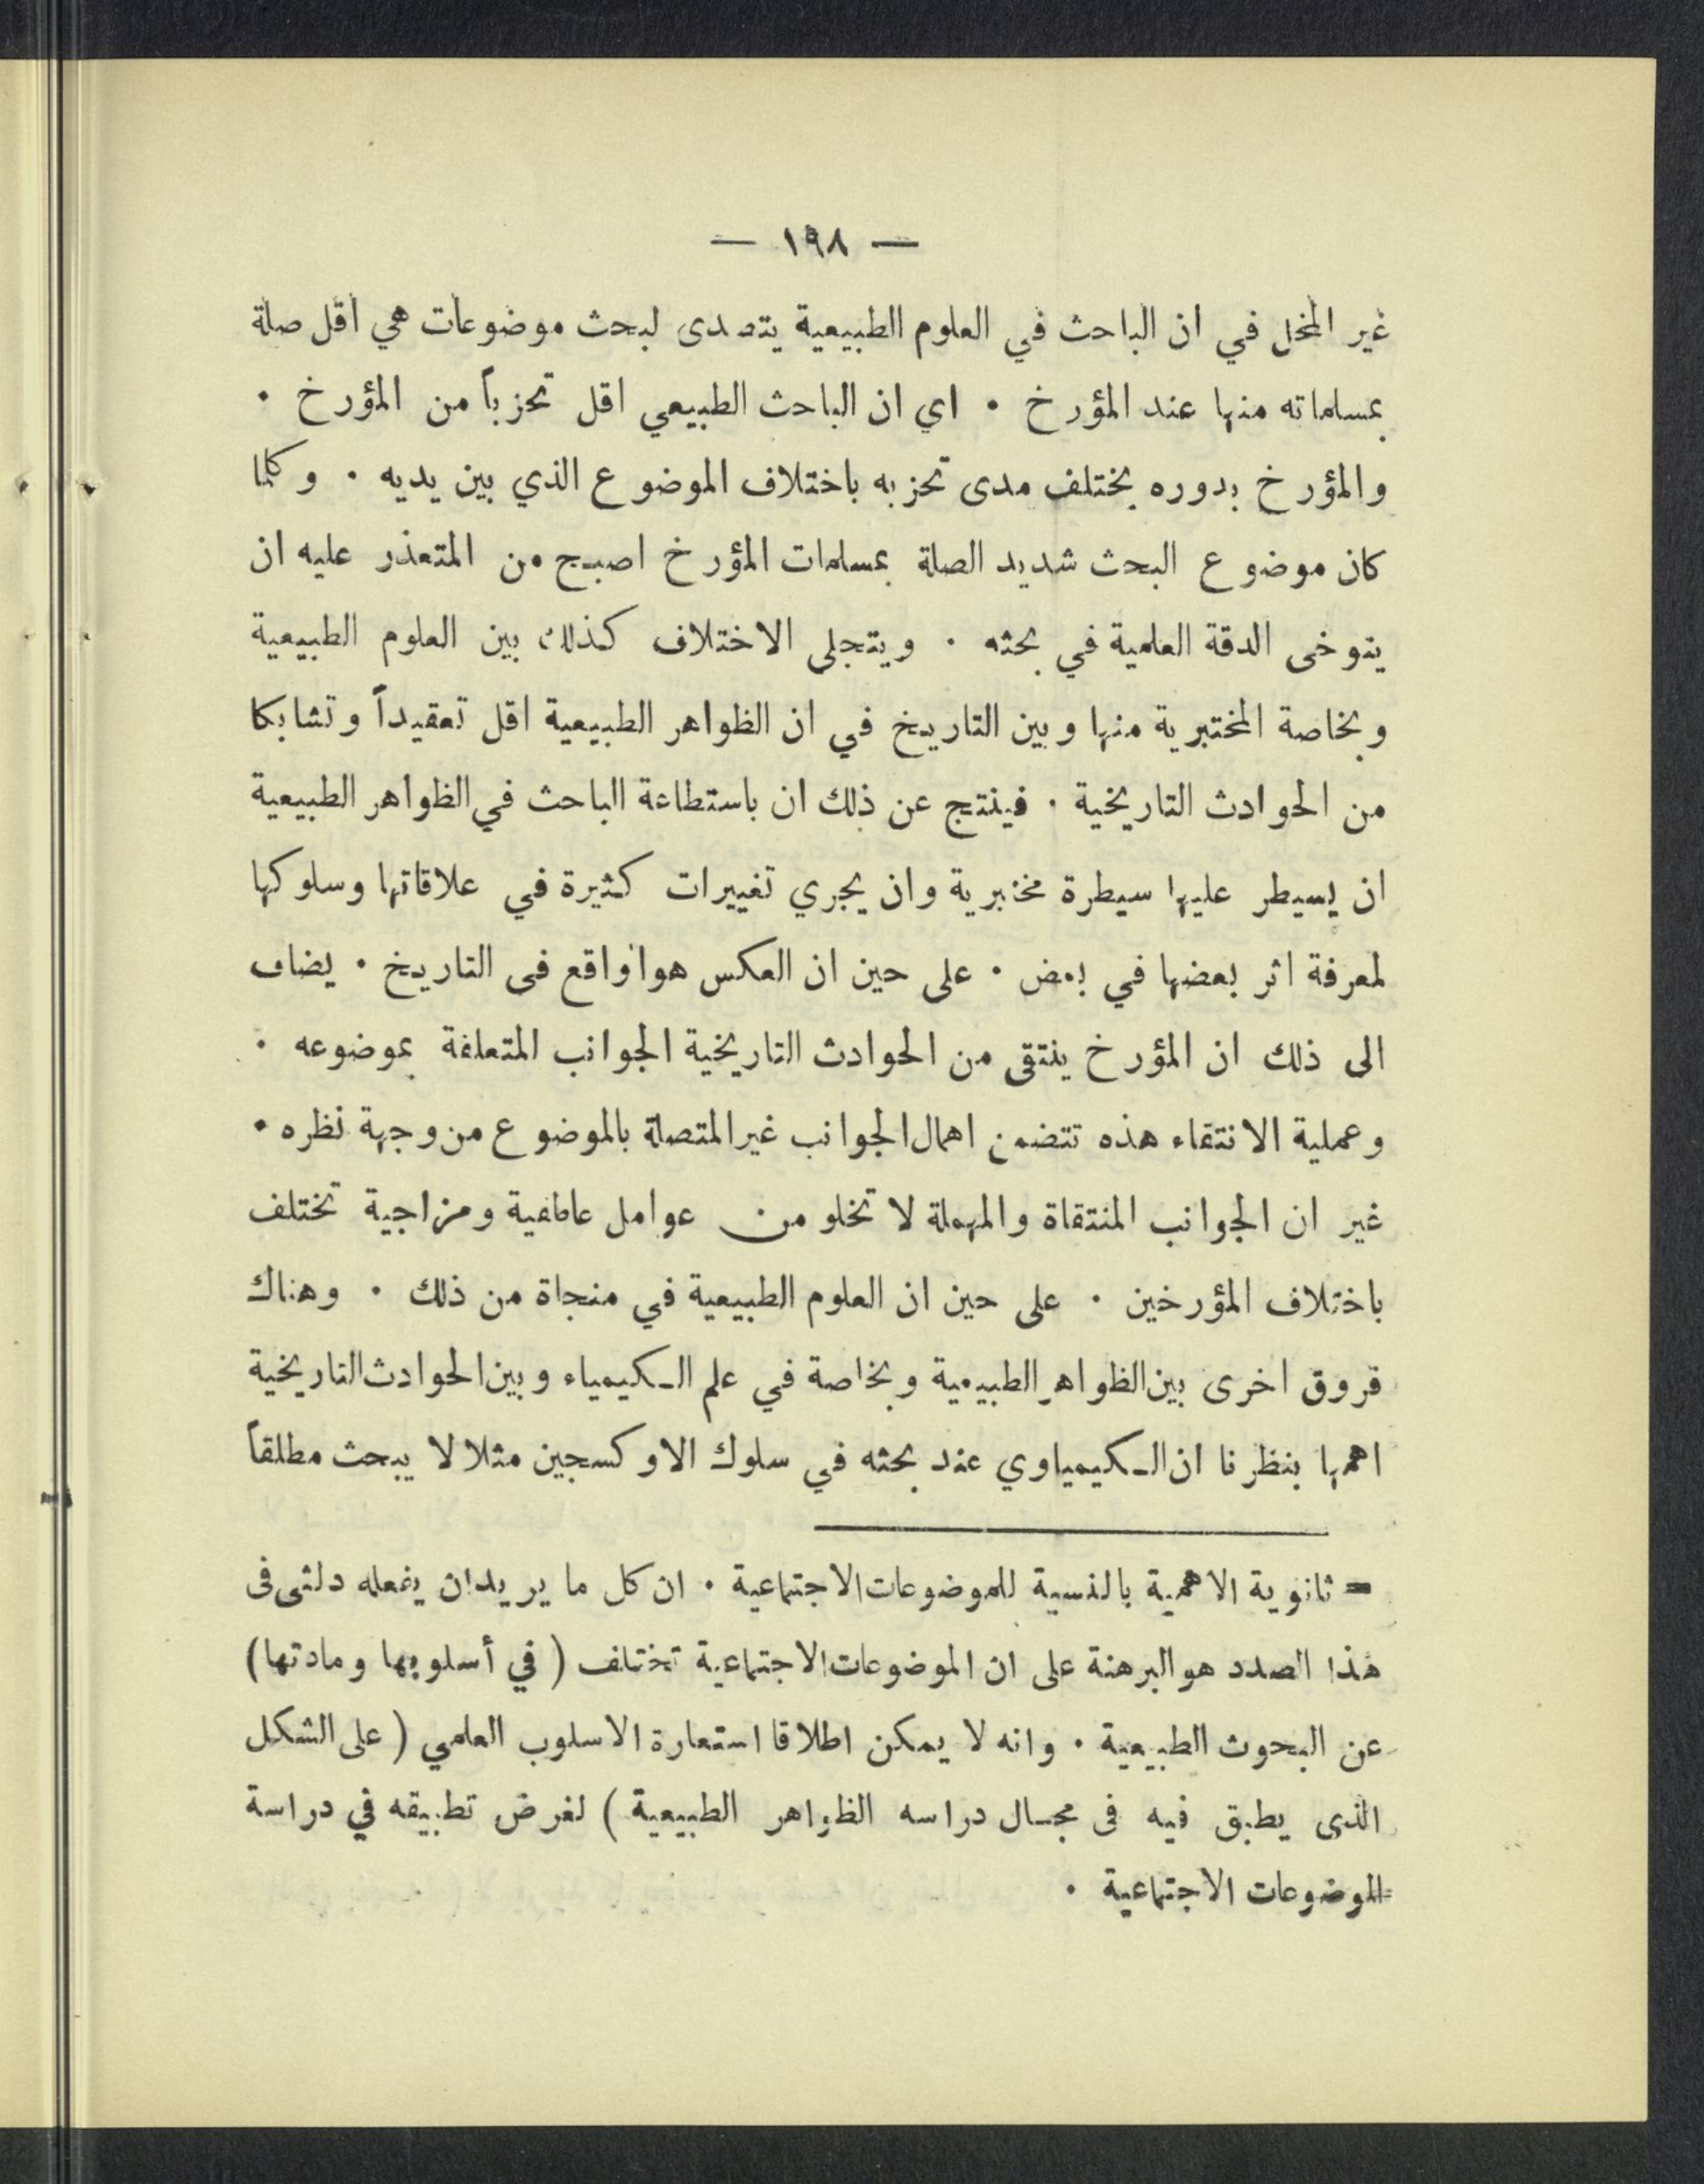 — ١٩٨ —
غير المخل في ان الباحث في العلوم الطبيعية يتصدى لبحث موضوعات هي اقل صلة
بمسلماته منها عند المؤرخ . اي ان الباحث الطبيعي اقل تحزباً من المؤرخ .
والمؤرخ بدوره يختلف مدى تحزبه باختلاف الموضوع الذي بين يديه . وكلما
كان موضوع البحث شديد الصلة بمسلمات المؤرخ اصبح من المتعذر عليه ان
يتوخى الدقة العلمية في بحثه . ويتجلى الاختلاف كذلك بين العلوم الطبيعية
وبخاصة المختبرية منها وبين التاريخ في ان الظواهر الطبيعية اقل تعقيداً وتشابكا
من الحوادث التاريخية . فينتج عن ذلك ان باستطاعة الباحث في الظواهر الطبيعية
ان يسيطر عليها سيطرة مختبرية وان يجري تغييرات كثيرة في علاقاتها وسلوكها
لمعرفة اثر بعضها في بعض . على حين ان العكس هو اواقع فى التاريخ . يضاف
الى ذلك ان المؤرخ ينتقى من الحوادث التاريخية الجوانب المتعلقة بموضوعه .
وعملية الانتقاء هذه تتضمن اهمال الجوانب غير المتصلة بالموضوع من وجهة نظره .
غير ان الجوانب المنتقاة والمهملة لا تخلو من عوامل عاطفية ومزاجية تختلف
باختلاف المؤرخين . على حين ان العلوم الطبيعية في منجاة من ذلك . وهناك
فروق اخرى بين الظواهر الطبيعية وبخاصة في علم الكيمياء وبين الحوادث التاريخية
اهمها بنظرنا ان الكيمياوي عند بحثه في سلوك الاوكسجين مثلا لا يبحث مطلقاً
= ثانوية الاهمية بالنسبة للموضوعات الاجتماعية . ان كل ما يريد ان يفعله دلثى فى
هذا الصدد هو البرهنة على ان الموضوعات الاجتماعية تختلف ( في أسلوبها ومادتها )
عن البحوث الطبيعية . وانه لا يمكن اطلاقا استعارة الاسلوب العلمي ( على الشكل
الذى يطبق فيه فى مجال دراسه الظواهر الطبيعية ) لغرض تطبيقه في دراسة
الموضوعات الاجتماعية .